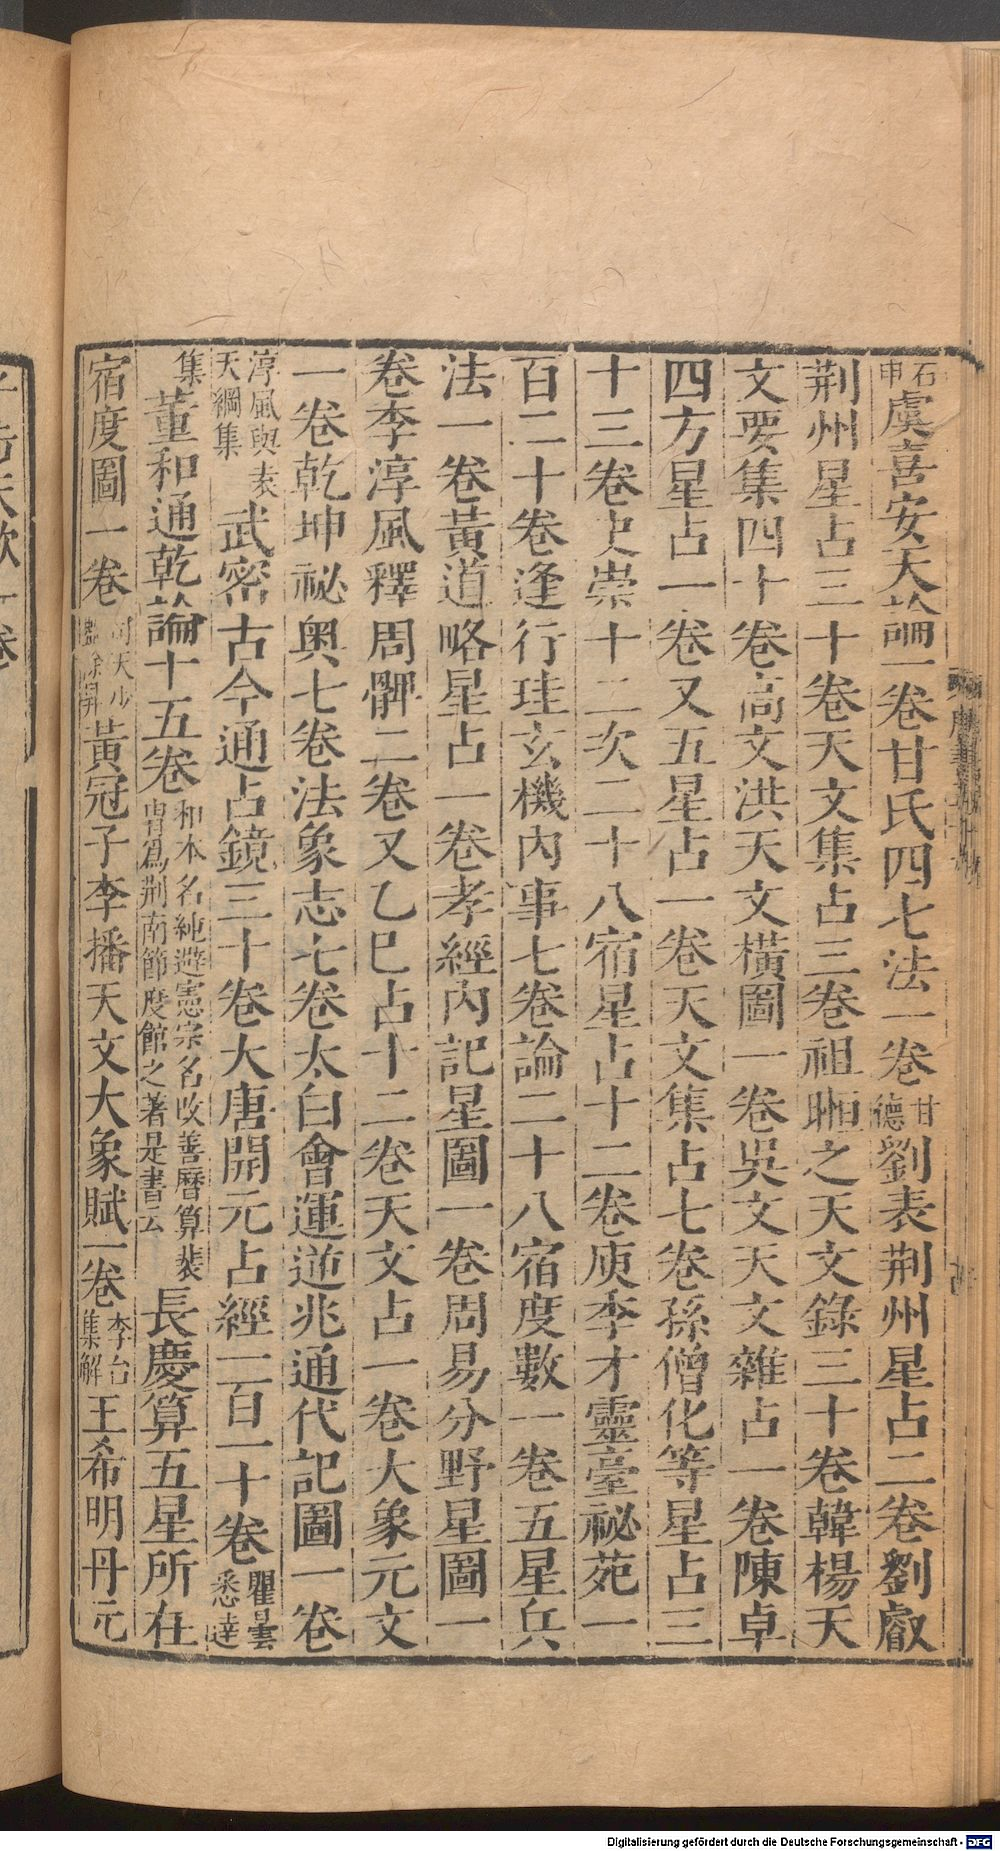 石申虞喜安天論一卷甘氏四七法一卷甘德劉表荆州星占二卷劉叡
荆州星占二十卷天文集占三卷祖暅之天文錄三十卷韓楊天
文要集四十卷高文洪天文橫圖一卷吳文天文雜占一卷陳卓
四方星占一卷又五星占一卷天文集占七卷孫僧化等星占三
十三卷史崇十二次二十八宿星占十二卷庾季才靈臺祕苑一
百二十卷逢行珪玄機內事七卷論二十八宿度數一卷五星兵
法一卷黃道略星占一卷孝經內記星圖一卷周易分野星圖一
卷李淳風釋周髀二卷又乙巳占十二卷天文占一卷大象元文
一卷乾坤祕奧七卷法象志七卷太白會運逆兆通代記圖一卷
淳風與袁天綱集武密古今通占鏡三十卷大唐開元占經一百一十卷瞿曇悉達
集董和通乾論十五卷和本名純避憲宗名改善曆算裴冑爲荆南節度館之著是書云長慶算五星所在
宿度圖一卷司天少監徐昇黃冠子李播天文大象賦一卷李台集解王希明丹元
Digitalisierung gefördert durch die Deutsche Forschungsgemeinschaft - DFG